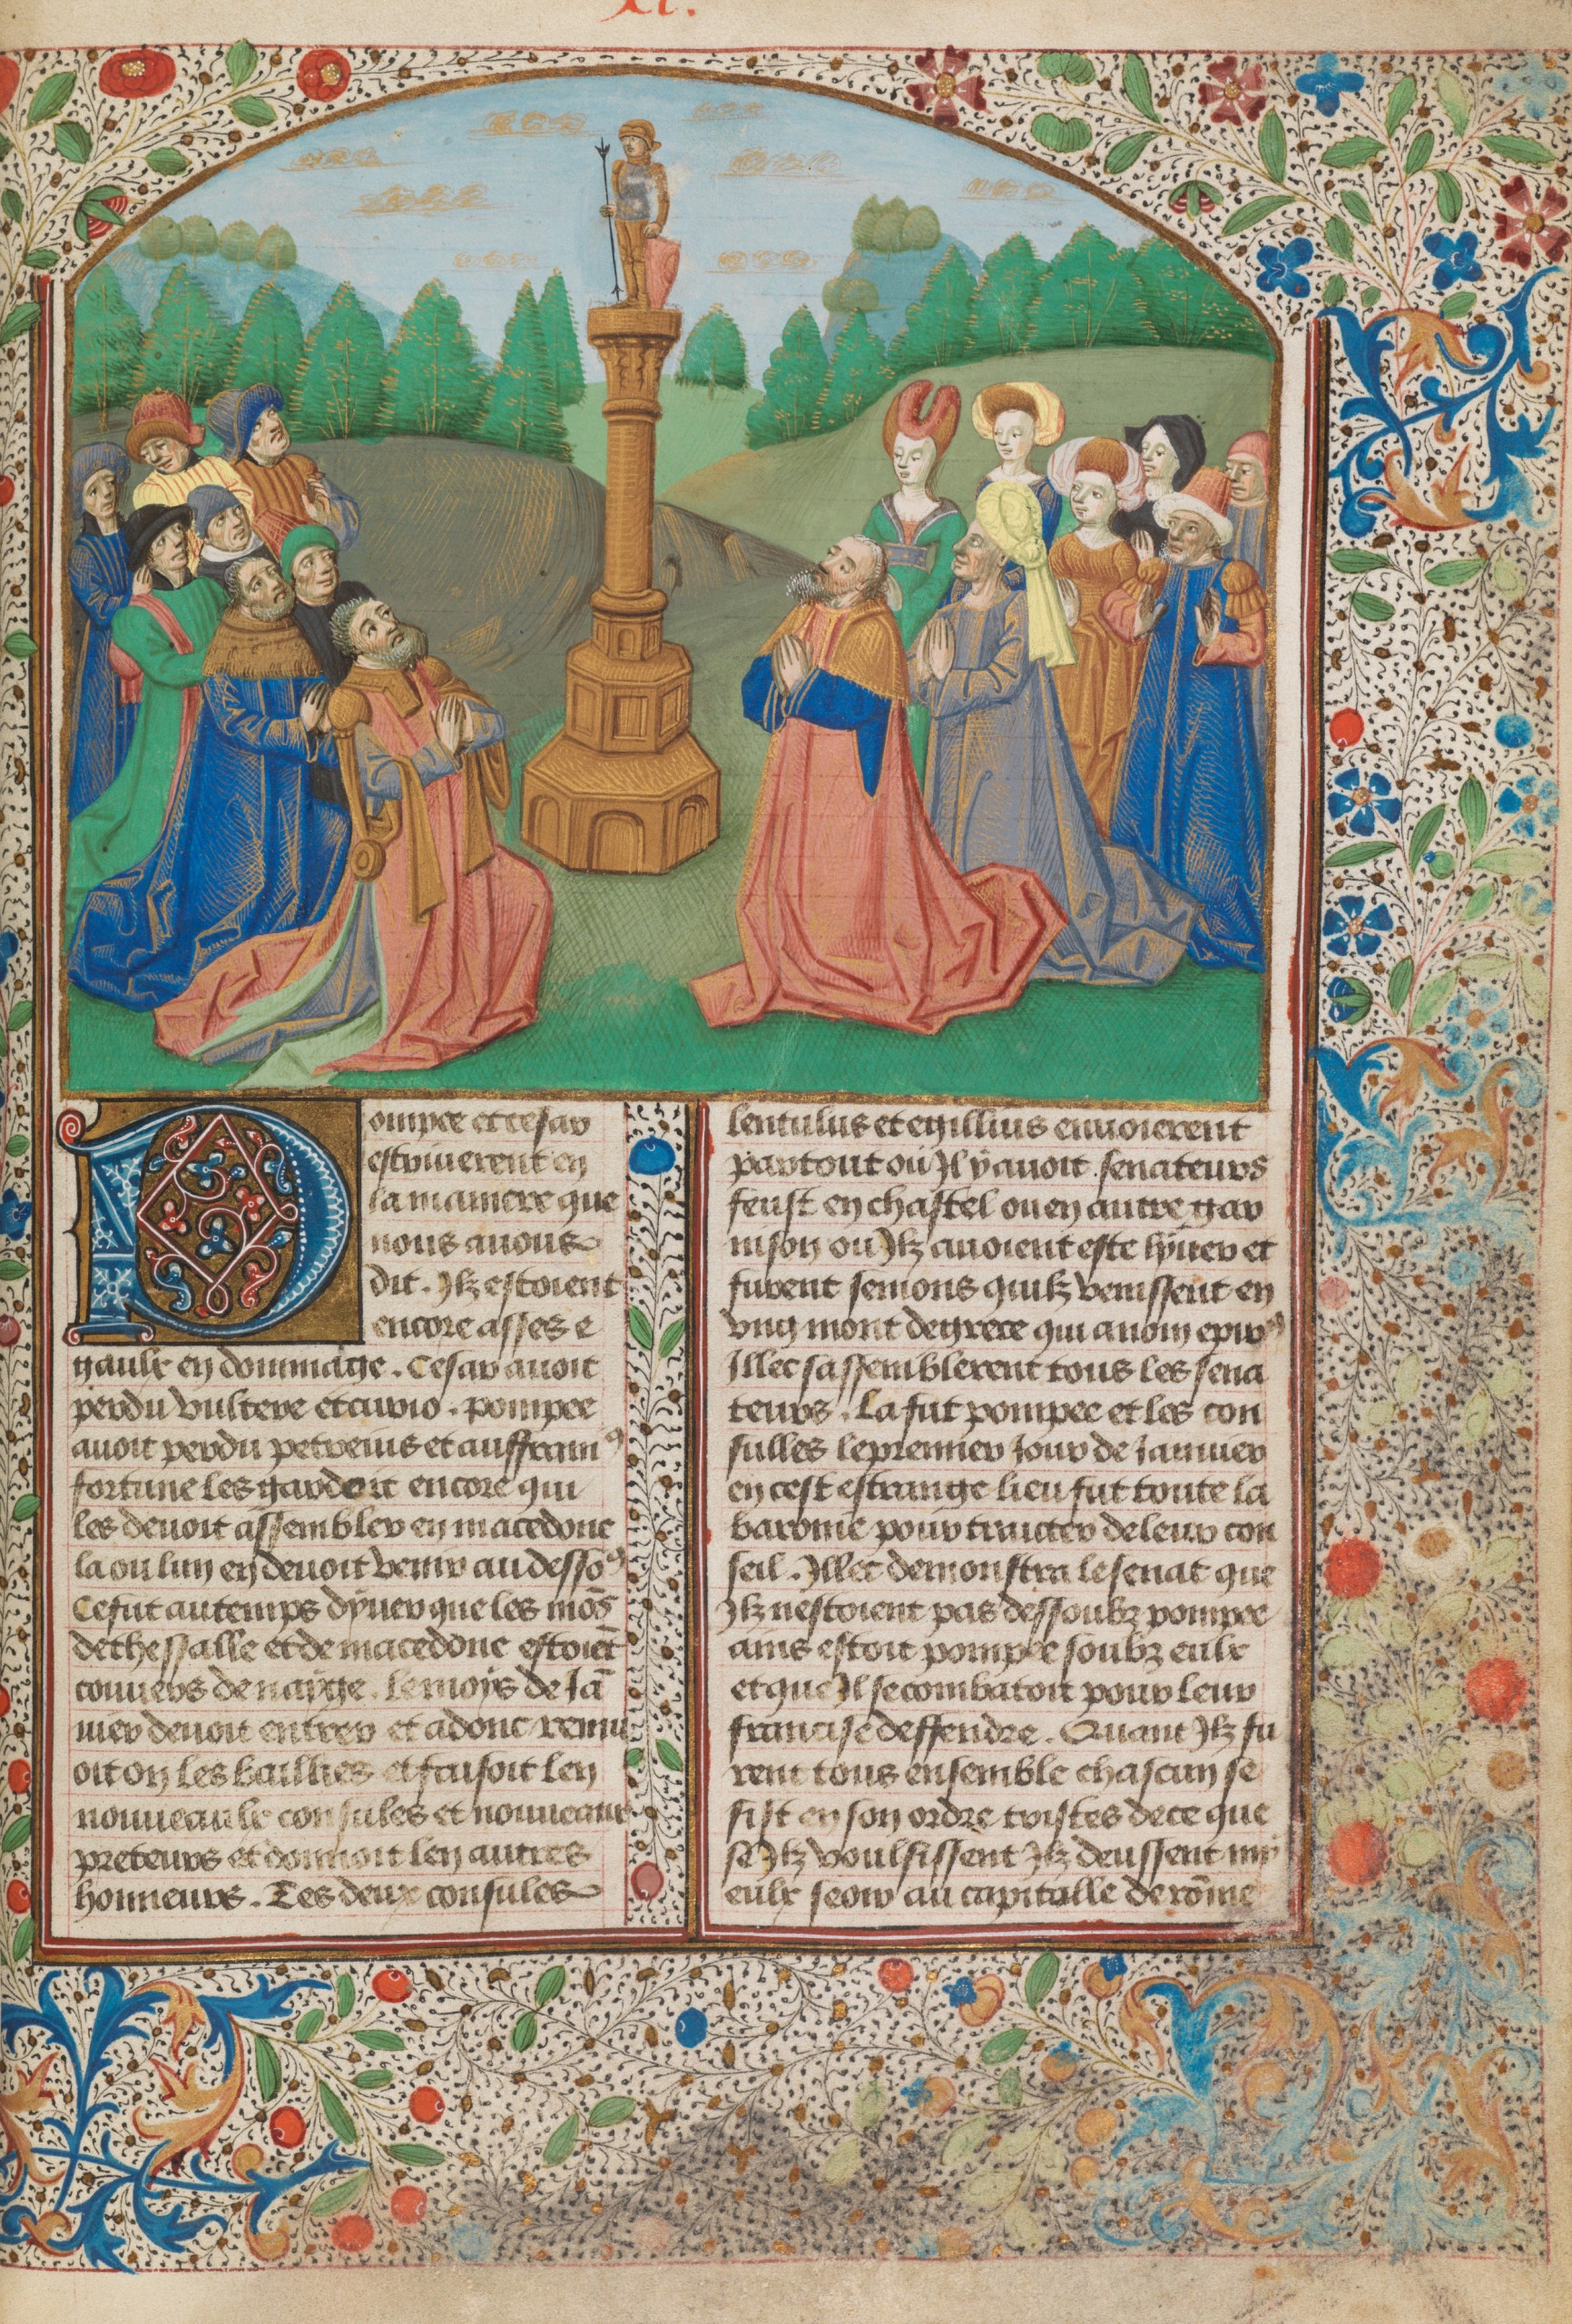 xl.
Pompee et cesar
estriuerent en
la maniere que
nous auons
dit. Ilz estoient
encore asses e
gaulx en dommage. Cesar auoit
perdu vulteye et curio. Pompee
auoit perdu petreius et auffram⁹
fortune les gardoit encore qui
les deuoit assembler en macedone
la ou lun en deuoit venir au desso⁹
Ce fut au temps dyuer que les mōs
de thessalle et de macedone estoiēt
couuers de naige. le moys de Jā
uier deuoit entrer et adonc remu
oit on les baillies et faisoit len
nouueaulx consules et nouueaux
preteurs et donnoit len autres
honneurs. Les deux consules
lentulus et egillius enuoierent
partout ou Il y auoit senateurs
feust en chastel ou en autre gar
nison ou Ilz auoient este hyuer et
furent semons quilz venissent en
vng mont de grece qui a nom epir⁹
Illec sassemblerent tous les sena
teurs. La fut pompee et les con
sulles le premier Jour de Januier
en cest estrange lieu fut toute la
baronie pour traicter de leur con
seil. Illec demonstra le senat que
Ilz nestoient pas dessoubz pompee
ains estoit pompee soubz eulx
et que Il se combatoit pour leur
franchise deffendre. Quant Ilz fu
rent tous ensemble chascun se
sist en son ordre tristes de ce que
se Ilz voulsissent Ilz deussent mi
eulx seoir au capitolle de rōme